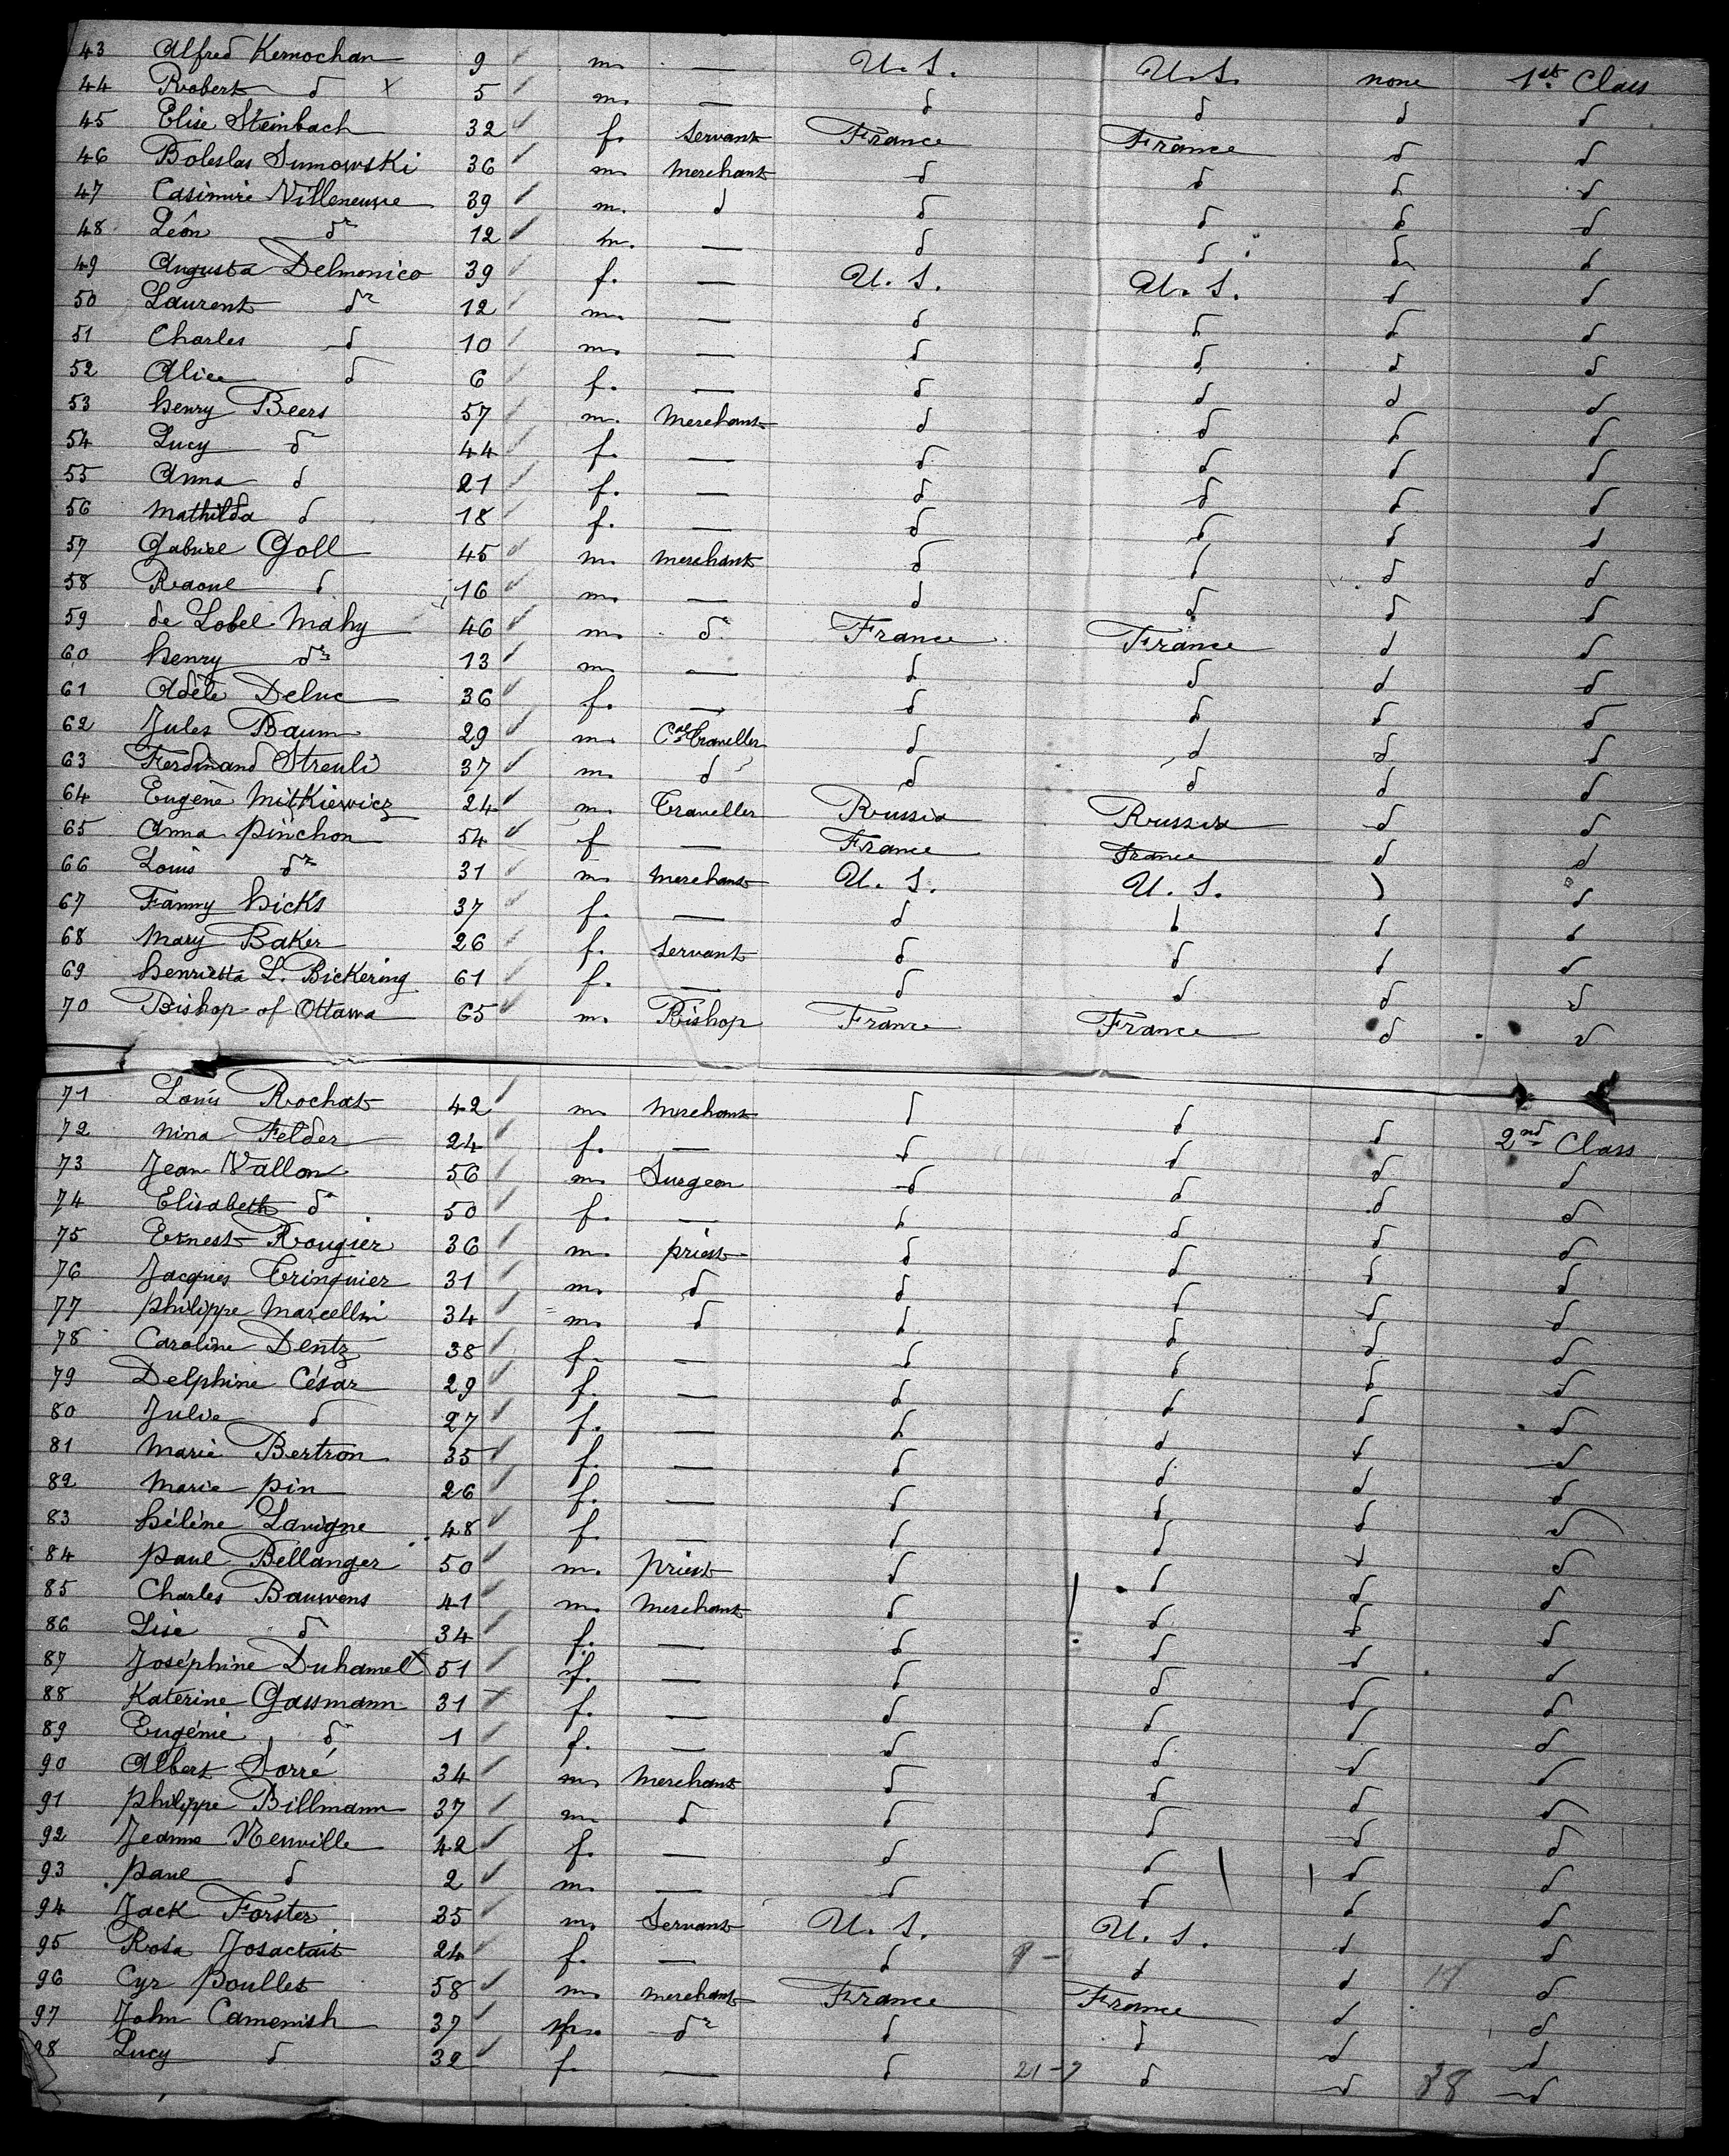 43 Alfred Kernochan 9 m. — U. S. U. S. none 1st Class
44 Robert d x 5 m. — d d d d
45 Elise Steinbach 32 f. Servant France France d d
46 Boleslas Sumowski 36 m. Merchant d d d d
47 Casimire Villeneuve 39 m. d d d d d
48 Léon do 12 m. — d d d d
49 Augusta Delmonico 39 f. — U. S. U. S. d d
50 Laurent do 12 m. — d d d d
51 Charles d 10 m. — d d d d
52 Alice d 6 f. — d d d d
53 henry Beers 57 m. Merchant d d d d
54 Lucy d 44 f. — d d d d
55 Anna d 21 f. — d d d d
56 Mathilda d 18 f. — d d d d
57 Gabriel Goll 45 m. Merchant d d d d
58 Raoul d 16 m. — d d d d
59 de Lobel Mahy 46 m. d France France d d
60 henry do 13 m. — d d d d
61 Adèle Deluc 36 f. — d d d d
62 Jules Baum 29 m. Cal Traveller d d d d
63 Ferdinand Streuli 37 m. d d d d d
64 Eugène Mitkiewicz 24 m. Traveller Russia Russia d d
65 Anna Pinchon 54 f — France France d d
66 Louis do 31 m. Merchant U. S. U. S. d
67 Fanny hicks 37 f. — d d d d
68 Mary Baker 26 f. Servant d d d d
69 henrietta L. Bickering 61 f. — d d d d
70 Bishop of Ottawa 65 m. Bishop France France d d
71 Louis Rochat 42 m. Merchant d d d 2nd Class
72 Nina Felder 24 f. — d d d d
73 Jean Vallon 56 m. Surgeon d d d d
74 Elisabeth d 50 f. — d d d d
75 Ernest Rougier 36 m. priest d d d d
76 Jacques Tringuier 31 m. d d d d d
77 philippe Marcellin 34 m. d d d d d
78 Caroline Dentz 38 f. — d d d d
79 Delphine César 29 f. — d d d d
80 Julie d 27 f. — d d d d
81 Marie Bertron 35 f. — d d d d
82 Marie pin 26 f. — d d d d
83 hélène Lavigne 48 f. — d d d d
84 paul Bellanger 50 m. priest d d d d
85 Charles Bauwens 41 m. Merchant d d d d
86 Lise d 34 f. — d d d d
87 Joséphine Duhamel 51 f. — d d d d
88 Katerine Gassmann 31 f. — d d d d
89 Eugénie d 1 f. — d d d d
90 Albert Sorré 34 m. Merchant d d d d
91 philippe Billmann 37 m. d d d d d
92 Jeanne Neuville 42 f. — d d d d
93 paul d 2 m. — d d d d
94 Jack Forster 35 m. Servant U. S. U. S. d d
95 Rosa 24 f. — d 9 - d d d
96 Cyr poullet 58 m. Merchant France France d d
97 John Camenish 37 m. do d d d d
98 Lucy d 32 f. — d 21-7 d d 38 d